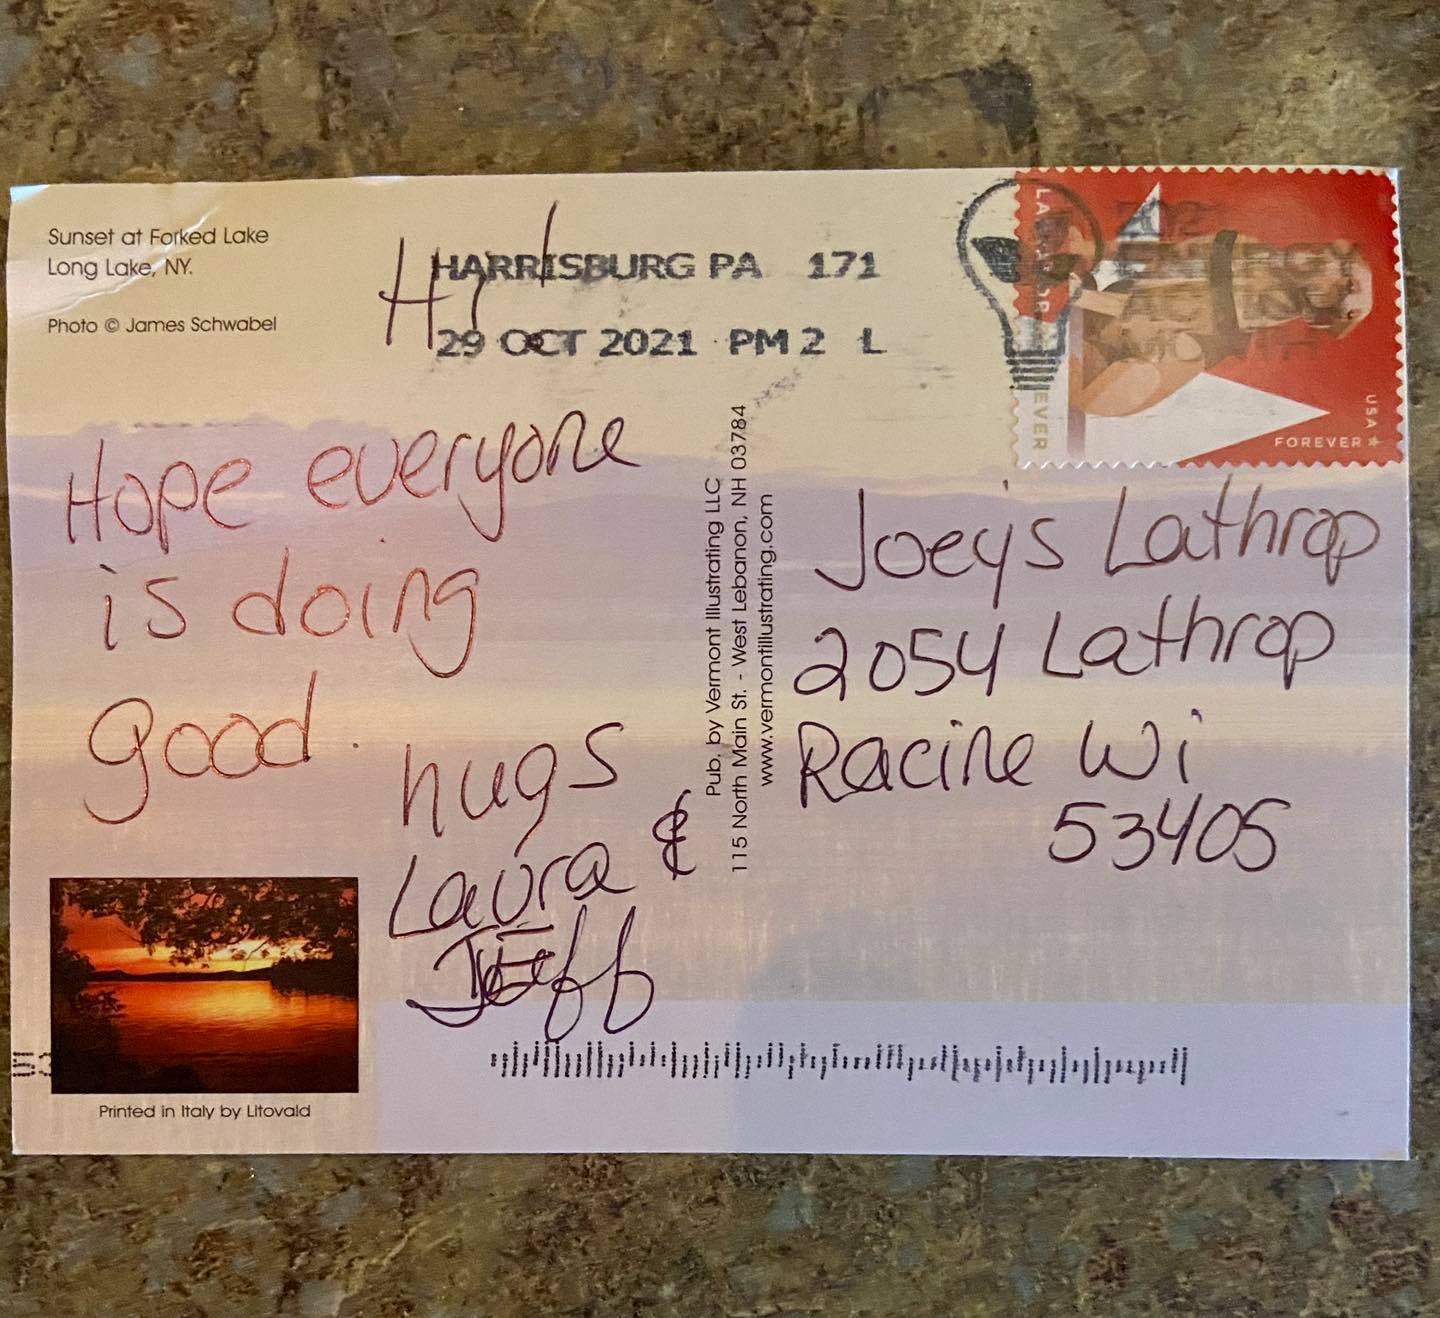 Sunset at Forked Lake
Long Lake, NY.
Photo © James Schwabel
Hi
HARRISBURG PA 171
29 OCT 2021 PM 2 L
FOREVER
USA
Hope everyone
is doing
good.
hugs
Laura &
Jeff
Pub. by Vermont Illustrating LLC
115 North Main St. - West Lebanon, NH 03784
www.vermontillustrating.com
Joey's Lathrop
2054 Lathrop
Racine Wi
53405
Printed in Italy by Litovald